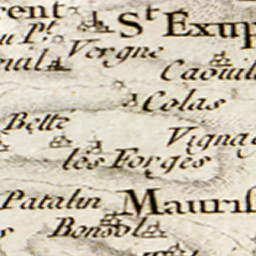 rent
St Exup
u Pt
Vergne
euil
Caouil
Colas
Bette
Vigna
les Forges
Patalin
Mauris
s
Bonsol